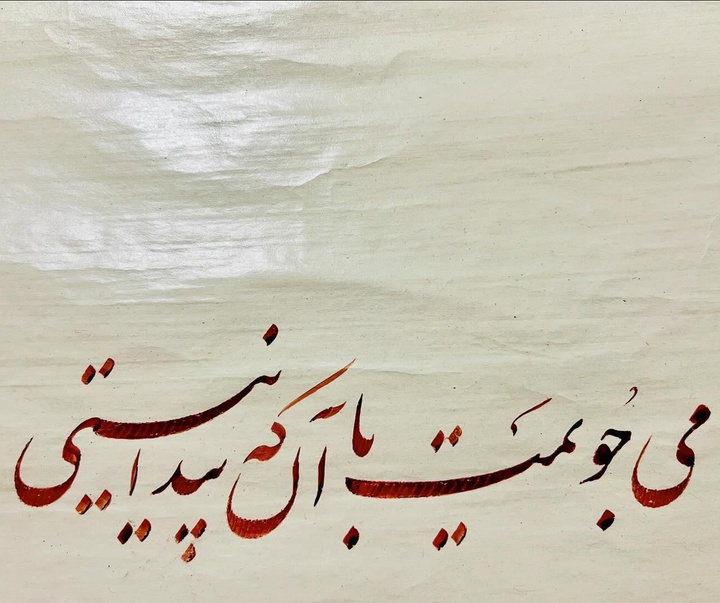 می جُویمیَت با آن که پیدا نیستی